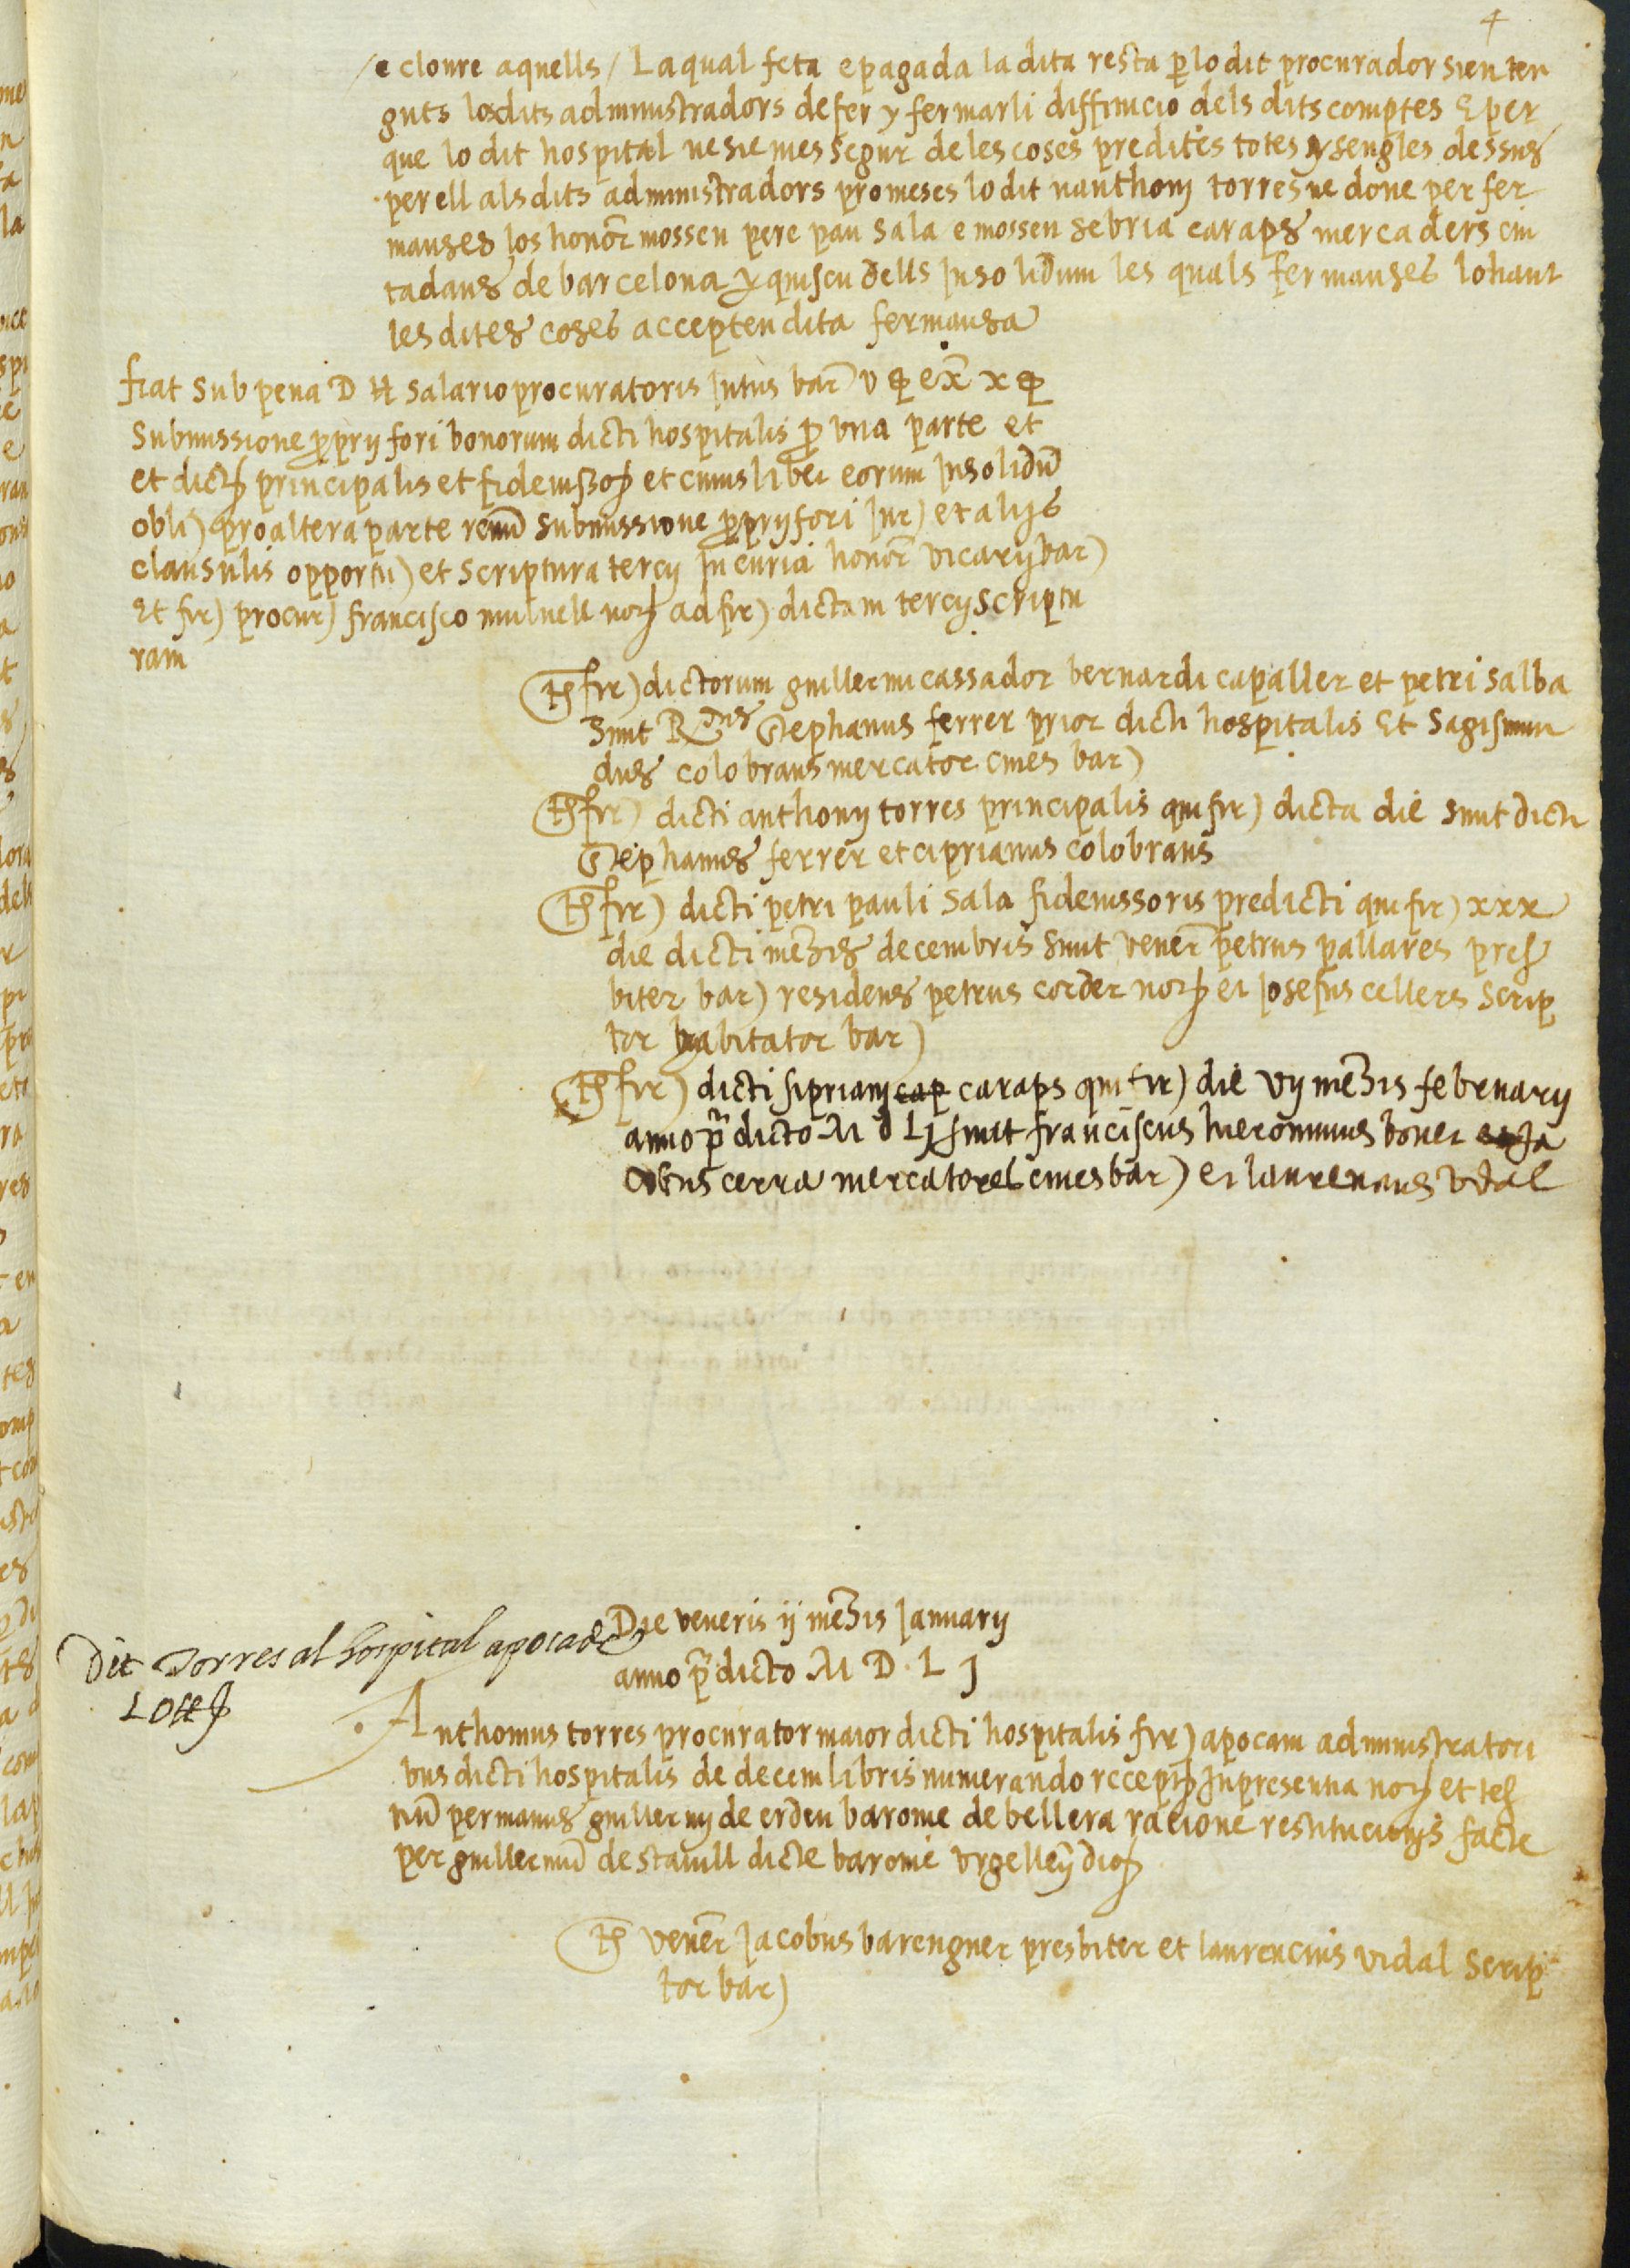 4
/e cloure aquells / La qual feta e pagada la dita resta p lo dit procurador sien ten
guts los dits administradors de fer y fermarli diffinicio dels dits comptes E per
que lo dit hospital ne sie mes segur de les coses predites totes y sengles dessus
per ell als dits administradors promeses lo dit nanthonj torres ne done per fer
manses los honor mossen pere pau sala e mossen sebria caraps mercaders ciu
tadans de barcelona y quiscu dells Insolidum les quals fermanses lohant
les dites coses accepten dita fermansa
fiat sub pena D ₶ salario procuratoris Intus bar) v ex x
Submissione proprij fori bonorum dicti hospitalis pro una parte et
et dictor principalis et fideiussor et cuiuslibet eorum Insolidu
obli) pro altera parte renu submissione proprij fori Jur) et alijs
clausulis opportu) et scriptura tercij In curia honor vicarij bar)
Et fir) procur) francisco mulnell not ad fir) dictam tercij scriptu
ram
Ts fir) dictorum guillermi cassador bernardi capaller et petri salba
Sunt Rdus Stephanus ferrer prior dicti hospitalis Et Sagismun
dus colobrans mercator cives bar)
Ts fir) dicti anthonij torres principalis qui fir) dicta die sunt dicti
Stephanus ferrer et ciprianus colobrans
Ts fir) dicti petri pauli sala fideiussoris predicti qui fir) xxx
die dicti mensis decembris sunt vener petrus pallares pres
biter bar) residens petrus corder not et Josefus cellers scrip
tor habitator bar)
Ts fir) dicti sipriani cap caraps qui fir) die vij mensis februarij
anno pdicto M d Lj sunt franciscus hieronimus boner et Ja
cobus cerra mercatores cives bar) et laurencius vidal
Die veneris ij mensis Januarij
anno pdicto M D L J
Dit Torres al hospital apoca de
L D ₶
Anthonius torres procurator maior dicti hospitalis fir) apocam administratori
bus dicti hospitalis de decem libris numerando recept In presentia not et tes
tiu per manus guillermj de erdeu baronie de bellera ratione restitucionis facte
per guillermu de stavill dicte baronie Urgelley dio
Ts vener Jacobus barenguer presbiter et laurencius vidal scrip
tor bar)